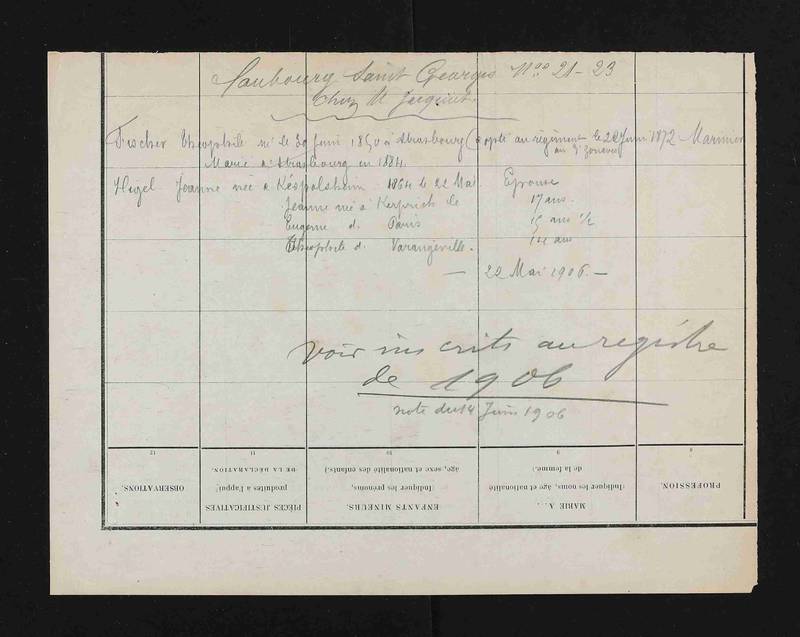 Faubourg Saint Georges Nos 21-23
Chez M Jacquot
Fischer Théophile né le 30 Juin 1850 à Strasbourg (opté au régiment le 20 Juin 1872 Marinier
au 3e Zouaves
Marié à Strasbourg en 1884.
Higel Jeanne née à 1864 le 22 Mai Epouse
Jeanne née à Kerprich le 17 ans.
Eugène d. Paris 15 ans 1/2
Théophile d. Varangéville. 14 ans
— 22 Mai 1906. —
voir inscrits au registre
de 1906
note du 14 Juin 1906
12
11
10
9
8
OBSERVATIONS.
PIÈCES JUSTIFICATIVES
produites à l'appui
DE LA DÉCLARATION.
ENFANTS MINEURS.
(Indiquer les prénoms,
âge, sexe et nationalité des enfants.)
MARIÉ A . . .
(Indiquer les noms, âge et nationalité
de la femme.)
PROFESSION.